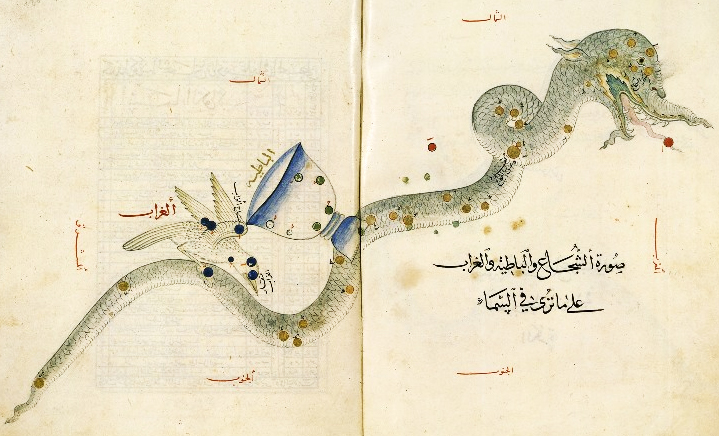 الشمال
الشمال
الباطية
الغراب
صورة الشجاع والباطية والغراب
على ما ترى في السماء
الجنوب
الجنوب